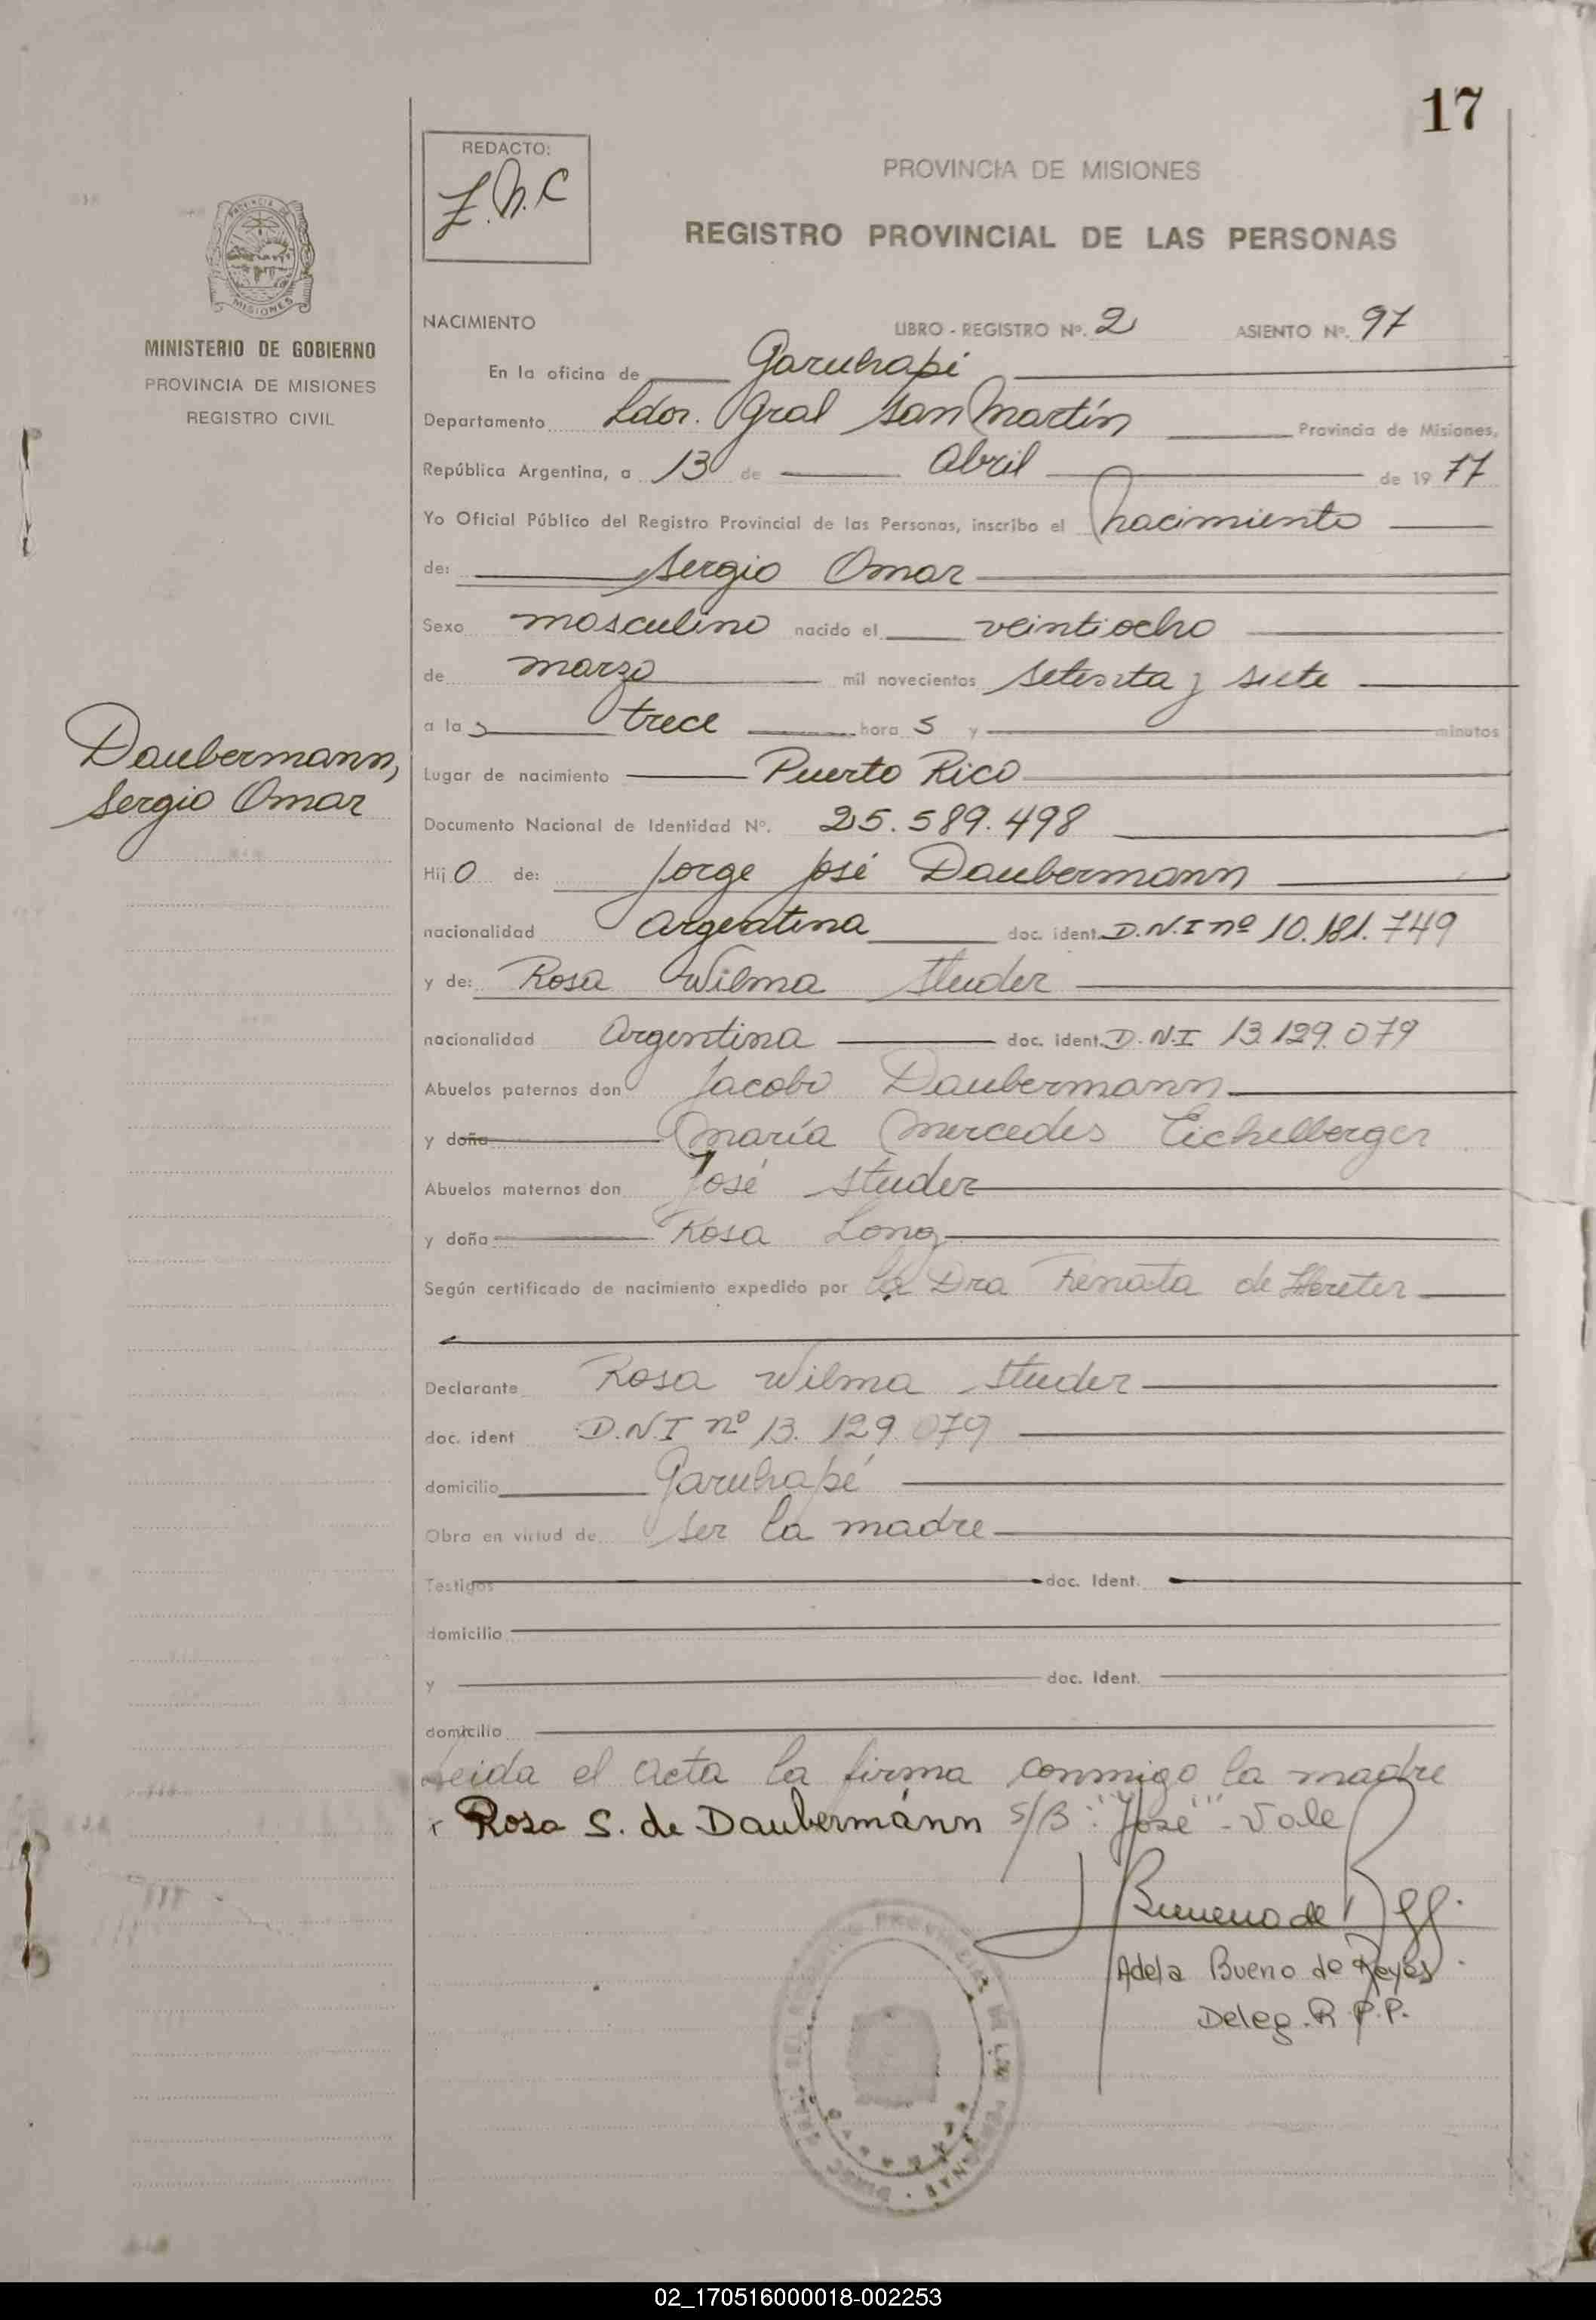 17
REDACTO:
Z.N.C
PROVINCIA DE MISIONES
REGISTRO PROVINCIAL DE LAS PERSONAS
MISIONES
MINISTERIO DE GOBIERNO
PROVINCIA DE MISIONES
REGISTRO CIVIL
Daubermann,
Sergio Omar
NACIMIENTO LIBRO - REGISTRO Nº. 2 ASIENTO Nº. 97
En la oficina de Garuhapé
Departamento Ldor. Gral San Martín Provincia de Misiones,
República Argentina, a 13 de Abril de 19 77
Yo Oficial Público del Registro Provincial de las Personas, inscribo el nacimiento
de: Sergio Omar
Sexo masculino nacido el veintiocho
de marzo mil novecientos setenta y siete
a la s trece hora s y minutos
Lugar de nacimiento Puerto Rico
Documento Nacional de Identidad Nº. 25.589.498
Hij o de: Jorge José Daubermann
nacionalidad Argentina doc. ident. D.N.I nº 10.181.749
y de: Rosa Wilma Studer
nacionalidad Argentina doc. ident. D.N.I 13.129.079
Abuelos paternos don Jacobo Daubermann
y doña María Mercedes Eichelberger
Abuelos maternos don José Studer
y doña Rosa Long
Según certificado de nacimiento expedido por la Dra Renata de
Declarante Rosa Wilma Studer
doc. ident D.N.I nº 13.129.079
domicilio Garuhapé
Obra en virtud de ser la madre
Testigos doc. Ident.
domicilio
y doc. Ident.
domicilio
Leida el acta la firma conmigo la madre
Rosa S. de Daubermánn S/B: "José" - Vale
Adela Bueno de Reyes
Deleg. R.P.P.
02_170516000018-002253